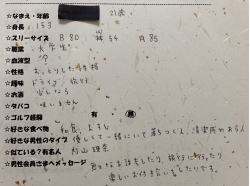 ☆なまえ・年齢 21歳
☆身長 153
☆スリーサイズ B 80 W 54 H 85
☆職業 大学生
☆血液型
☆性格 おっとりした性格
☆趣味 ドライブ、旅行
☆お酒 少しなら
☆タバコ 吸いません
☆ゴルフ経験 有 無
☆好きな食べ物 和食、お寿し
☆好きな男性のタイプ 優しくて一緒にいて落ちつく人、清潔感がある人
☆似ている?有名人
☆男性会員さまへメッセージ お食事をしたり、旅行に行ったり
楽しいお付き合いをしたいです。